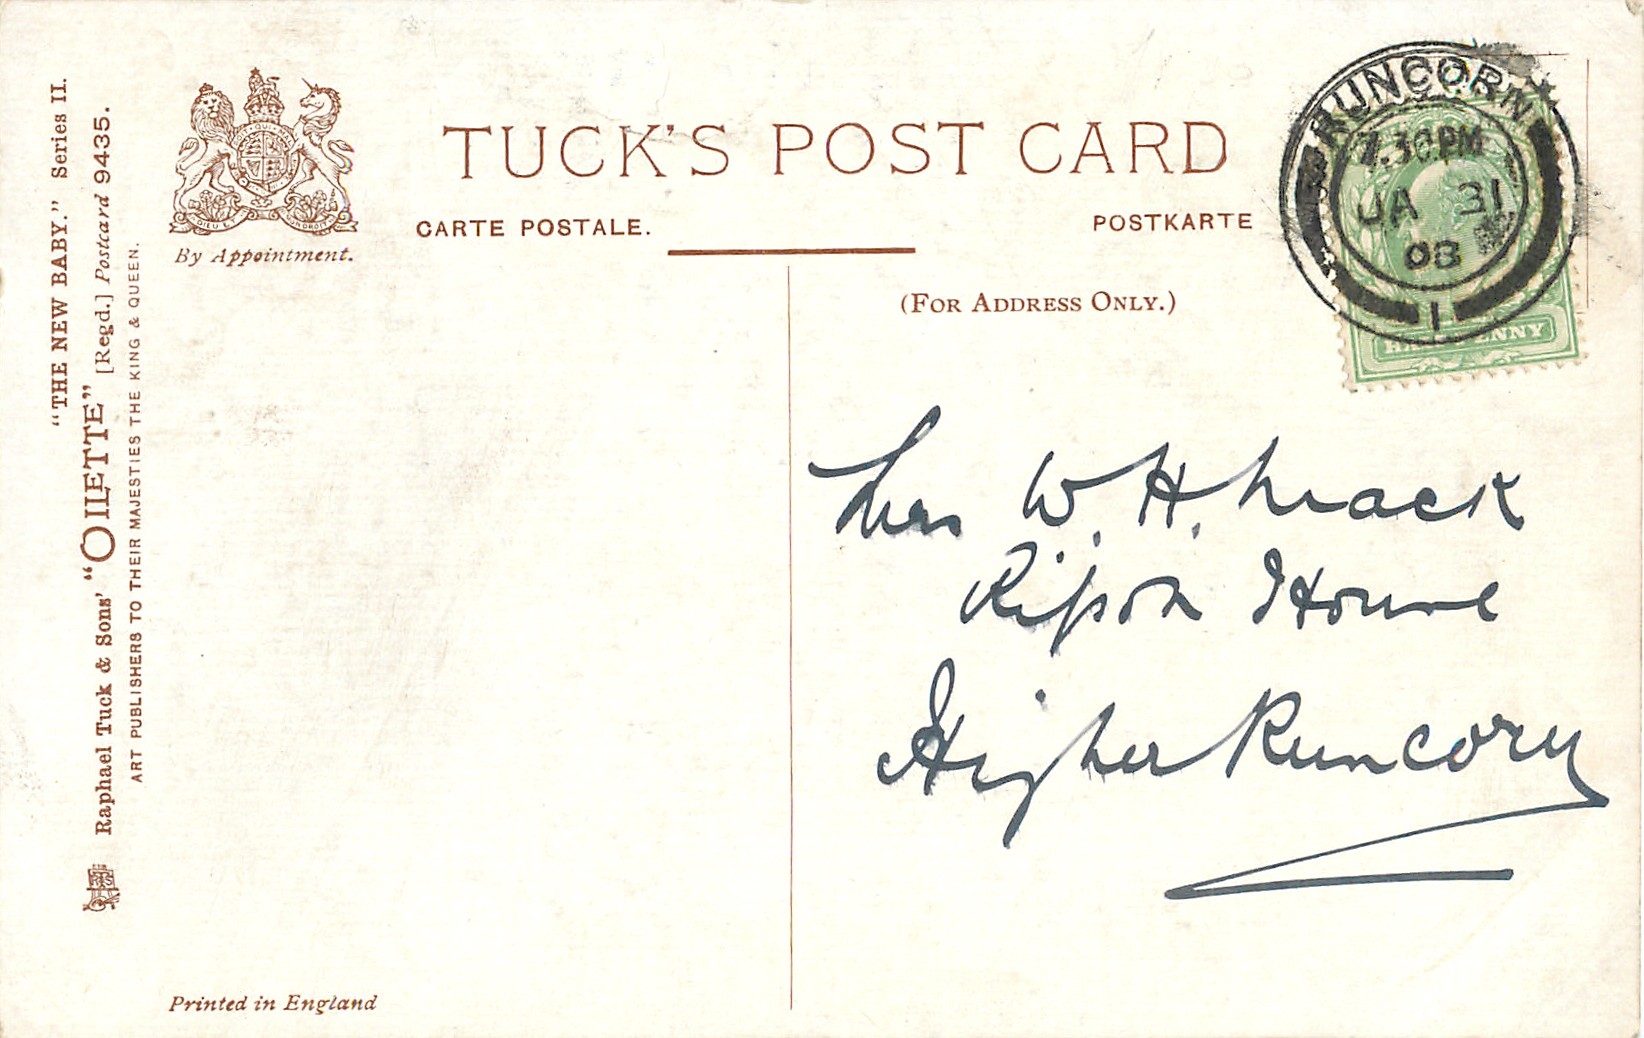 "THE NEW BABY." Series II.
Raphael Tuck & Sons' "OILETTE" [Regd.] Postcard 9435.
ART PUBLISHERS TO THEIR MAJESTIES THE KING & QUEEN.
By Appointment.
TUCK'S POST CARD
CARTE POSTALE.
POSTKARTE
(FOR ADDRESS ONLY.)
RUNCORN
7.30PM
JA 31
08
1
HALFPENNY
W. H.
Ripon House
Higher Runcorn
Printed in England